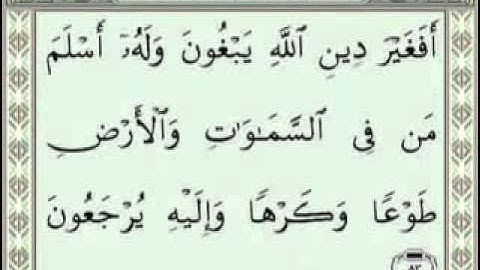 أَفَغَيْرَ دِينِ ٱللَّهِ يَبْغُونَ وَلَهُۥٓ أَسْلَمَ
مَن فِى ٱلسَّمَـٰوَٰتِ وَٱلْأَرْضِ
طَوْعًا وَكَرْهًا وَإِلَيْهِ يُرْجَعُونَ
٨٣